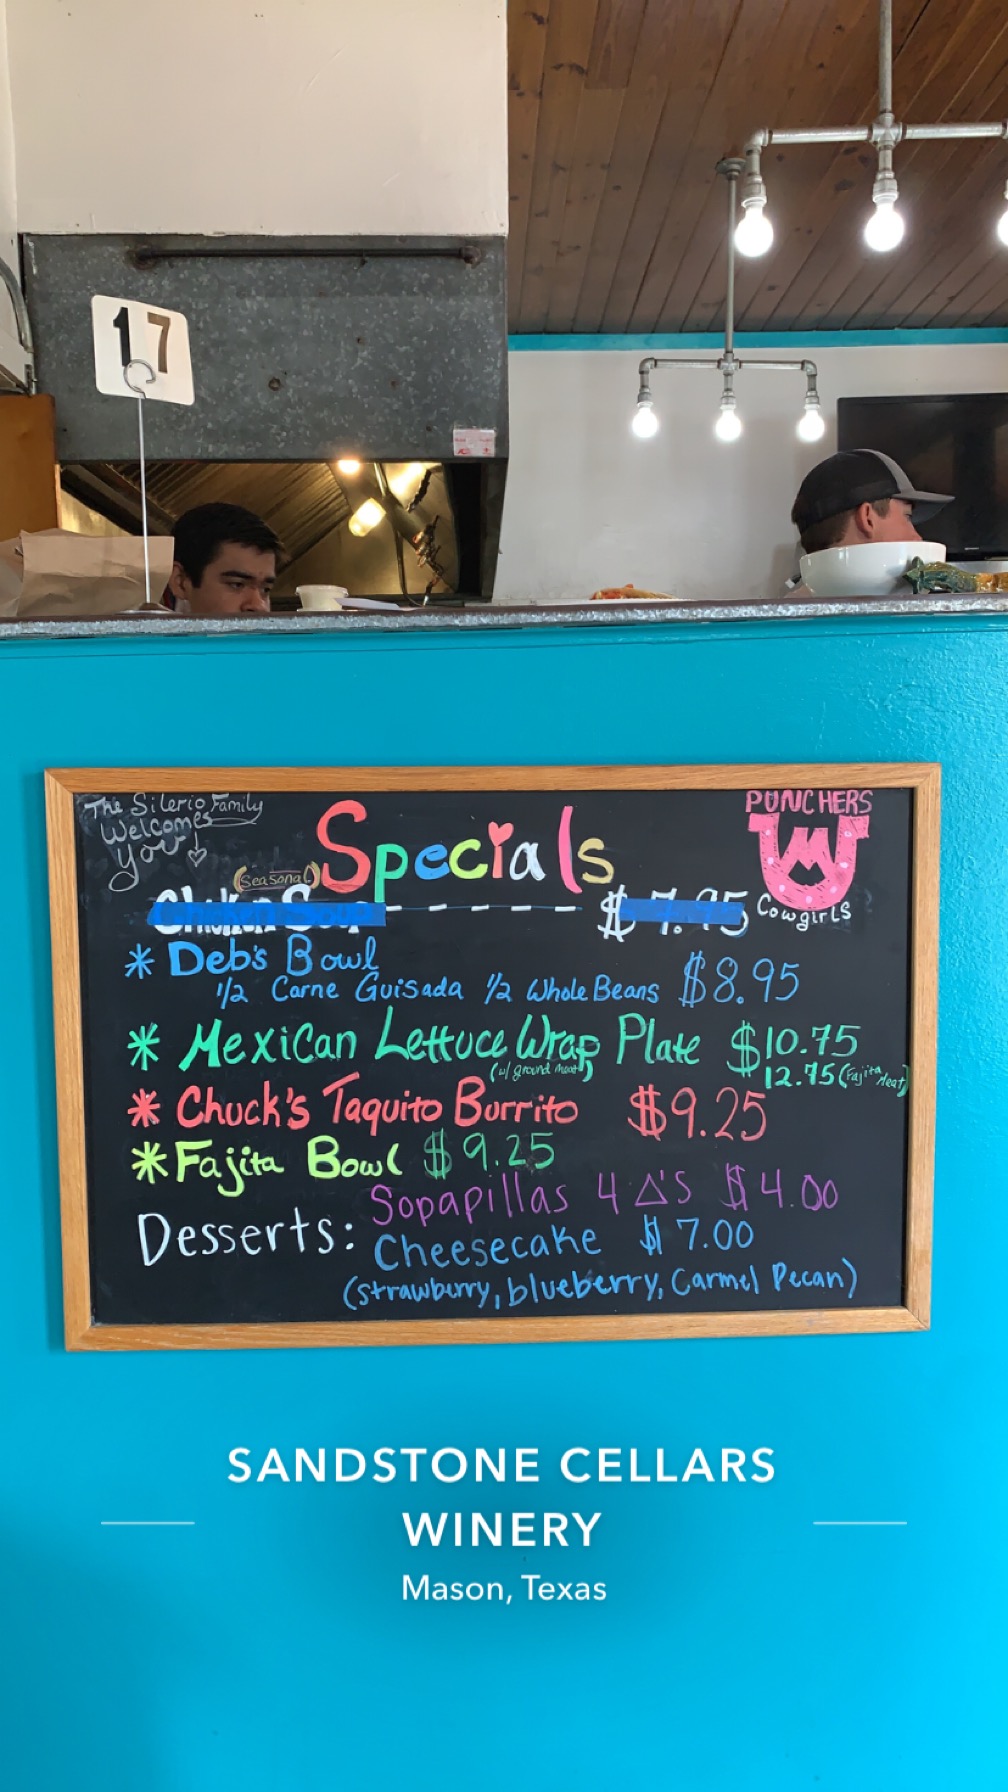 17
The Silerio Family
Welcomes
You!
Specials
PUNCHERS
M
Cowgirls
(Seasonal)
Chicken Soup $7.95
* Deb's Bowl $8.95
1/2 Carne Guisada 1/2 Whole Beans
* Mexican Lettuce Wrap Plate $10.75
(w/ ground meat) 12.75 (Fajita Meat)
* Chuck's Taquito Burrito $9.25
* Fajita Bowl $9.25
Desserts: Sopapillas 4 Δ's $4.00
Cheesecake $7.00
(strawberry, blueberry, Carmel Pecan)
SANDSTONE CELLARS
WINERY
Mason, Texas